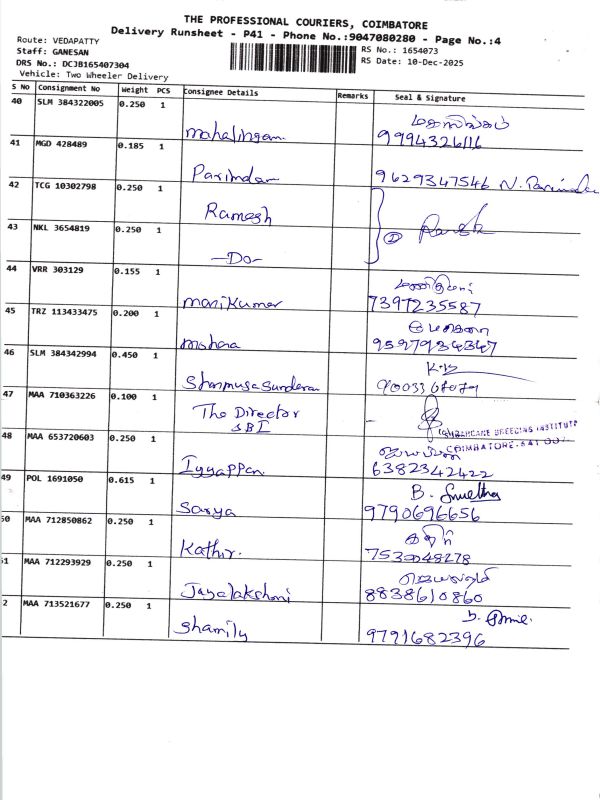 THE PROFESSIONAL COURIERS, COIMBATORE
Delivery Runsheet - P41 - Phone No.:9047080280 - Page No.:4
Route: VEDAPATTY
Staff: GANESAN
DRS No.: DCJB165407304
Vehicle: Two Wheeler Delivery
RS No.: 1654073
RS Date: 10-Dec-2025
S No Consignment No Weight PCS Consignee Details Remarks Seal & Signature
40 SLM 384322005 0.250 1
mahalingam 9994326116
41 MGD 428489 0.185 1
Parimdar 9629347546 N.
42 TCG 10302798 0.250 1
Ramesh
43 NKL 3654819 0.250 1
-Do-
44 VRR 303129 0.155 1
manikumar 7397235587
45 TRZ 113433475 0.200 1
46 SLM 384342994 0.450 1
Shanmuga Sundaram
47 MAA 710363226 0.100 1
The Director
SBI
SUGARCANE BREEDING INSTITUTE
COIMBATORE-641 007
48 MAA 653720603 0.250 1
Iyyappan 6382342422
49 POL 1691050 0.615 1
B.
Sarya 9790696656
50 MAA 712850862 0.250 1
கதிர்
Kathir.
51 MAA 712293929 0.250 1
Jayalakshmi 8838610860
2 MAA 713521677 0.250 1
Shamily 9791682396